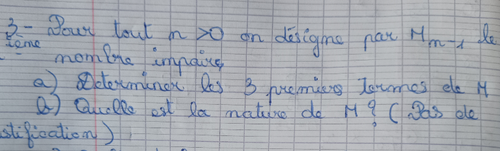 3- Pour tout n >0 on désigne par Mn-1 le
nième nombre impaire,
a) Determiner les 3 premiers termes de M
b) Quelle est la nature de M ? ( Pas de
stification)